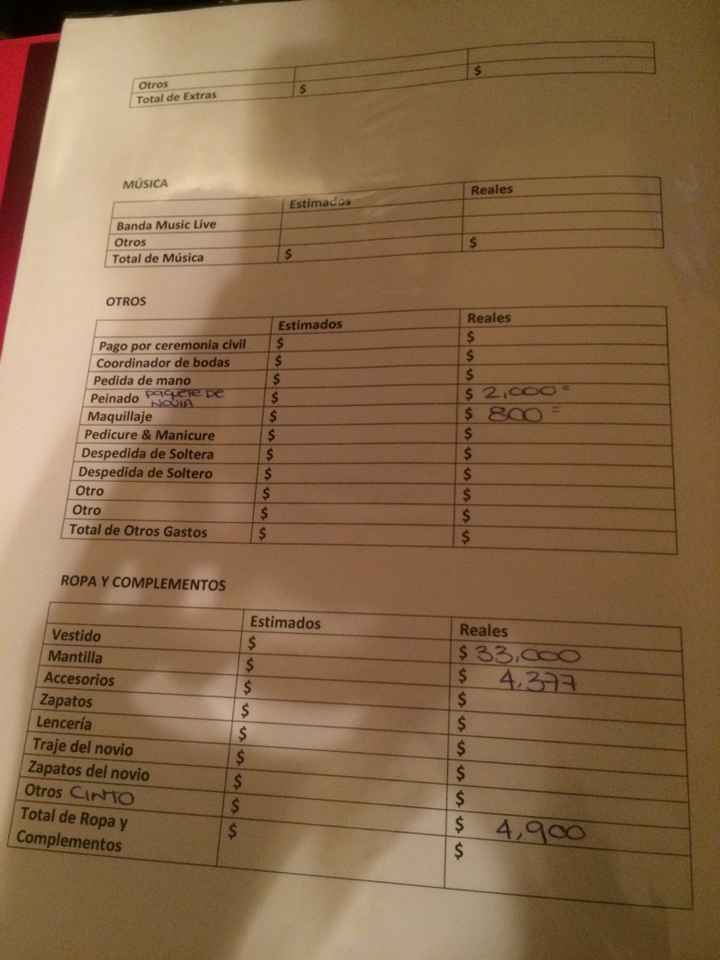 Otros
Total de Extras $ $
MÚSICA
Estimados Reales
Banda Music Live
Otros
Total de Música $ $
OTROS
Estimados Reales
Pago por ceremonia civil $ $
Coordinador de bodas $ $
Pedida de mano $ $
Peinado PAQUETE DE NOVIA $ $ 2,000=
Maquillaje $ $ 800=
Pedicure & Manicure $ $
Despedida de Soltera $ $
Despedida de Soltero $ $
Otro $ $
Otro $ $
Total de Otros Gastos $ $
ROPA Y COMPLEMENTOS
Estimados Reales
Vestido $ $ 33,000
Mantilla $ $ 4,377
Accesorios $ $
Zapatos $ $
Lencería $ $
Traje del novio $ $
Zapatos del novio $ $
Otros CINTO $ $ 4,900
Total de Ropa y $ $
Complementos